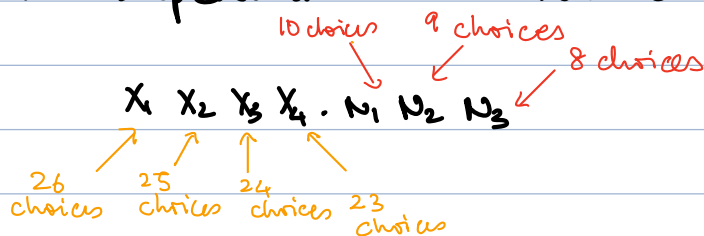 10 choices
9 choices
8 choices
X1 X2 X3 X4 . N1 N2 N3
26 choices
25 choices
24 choices
23 choices